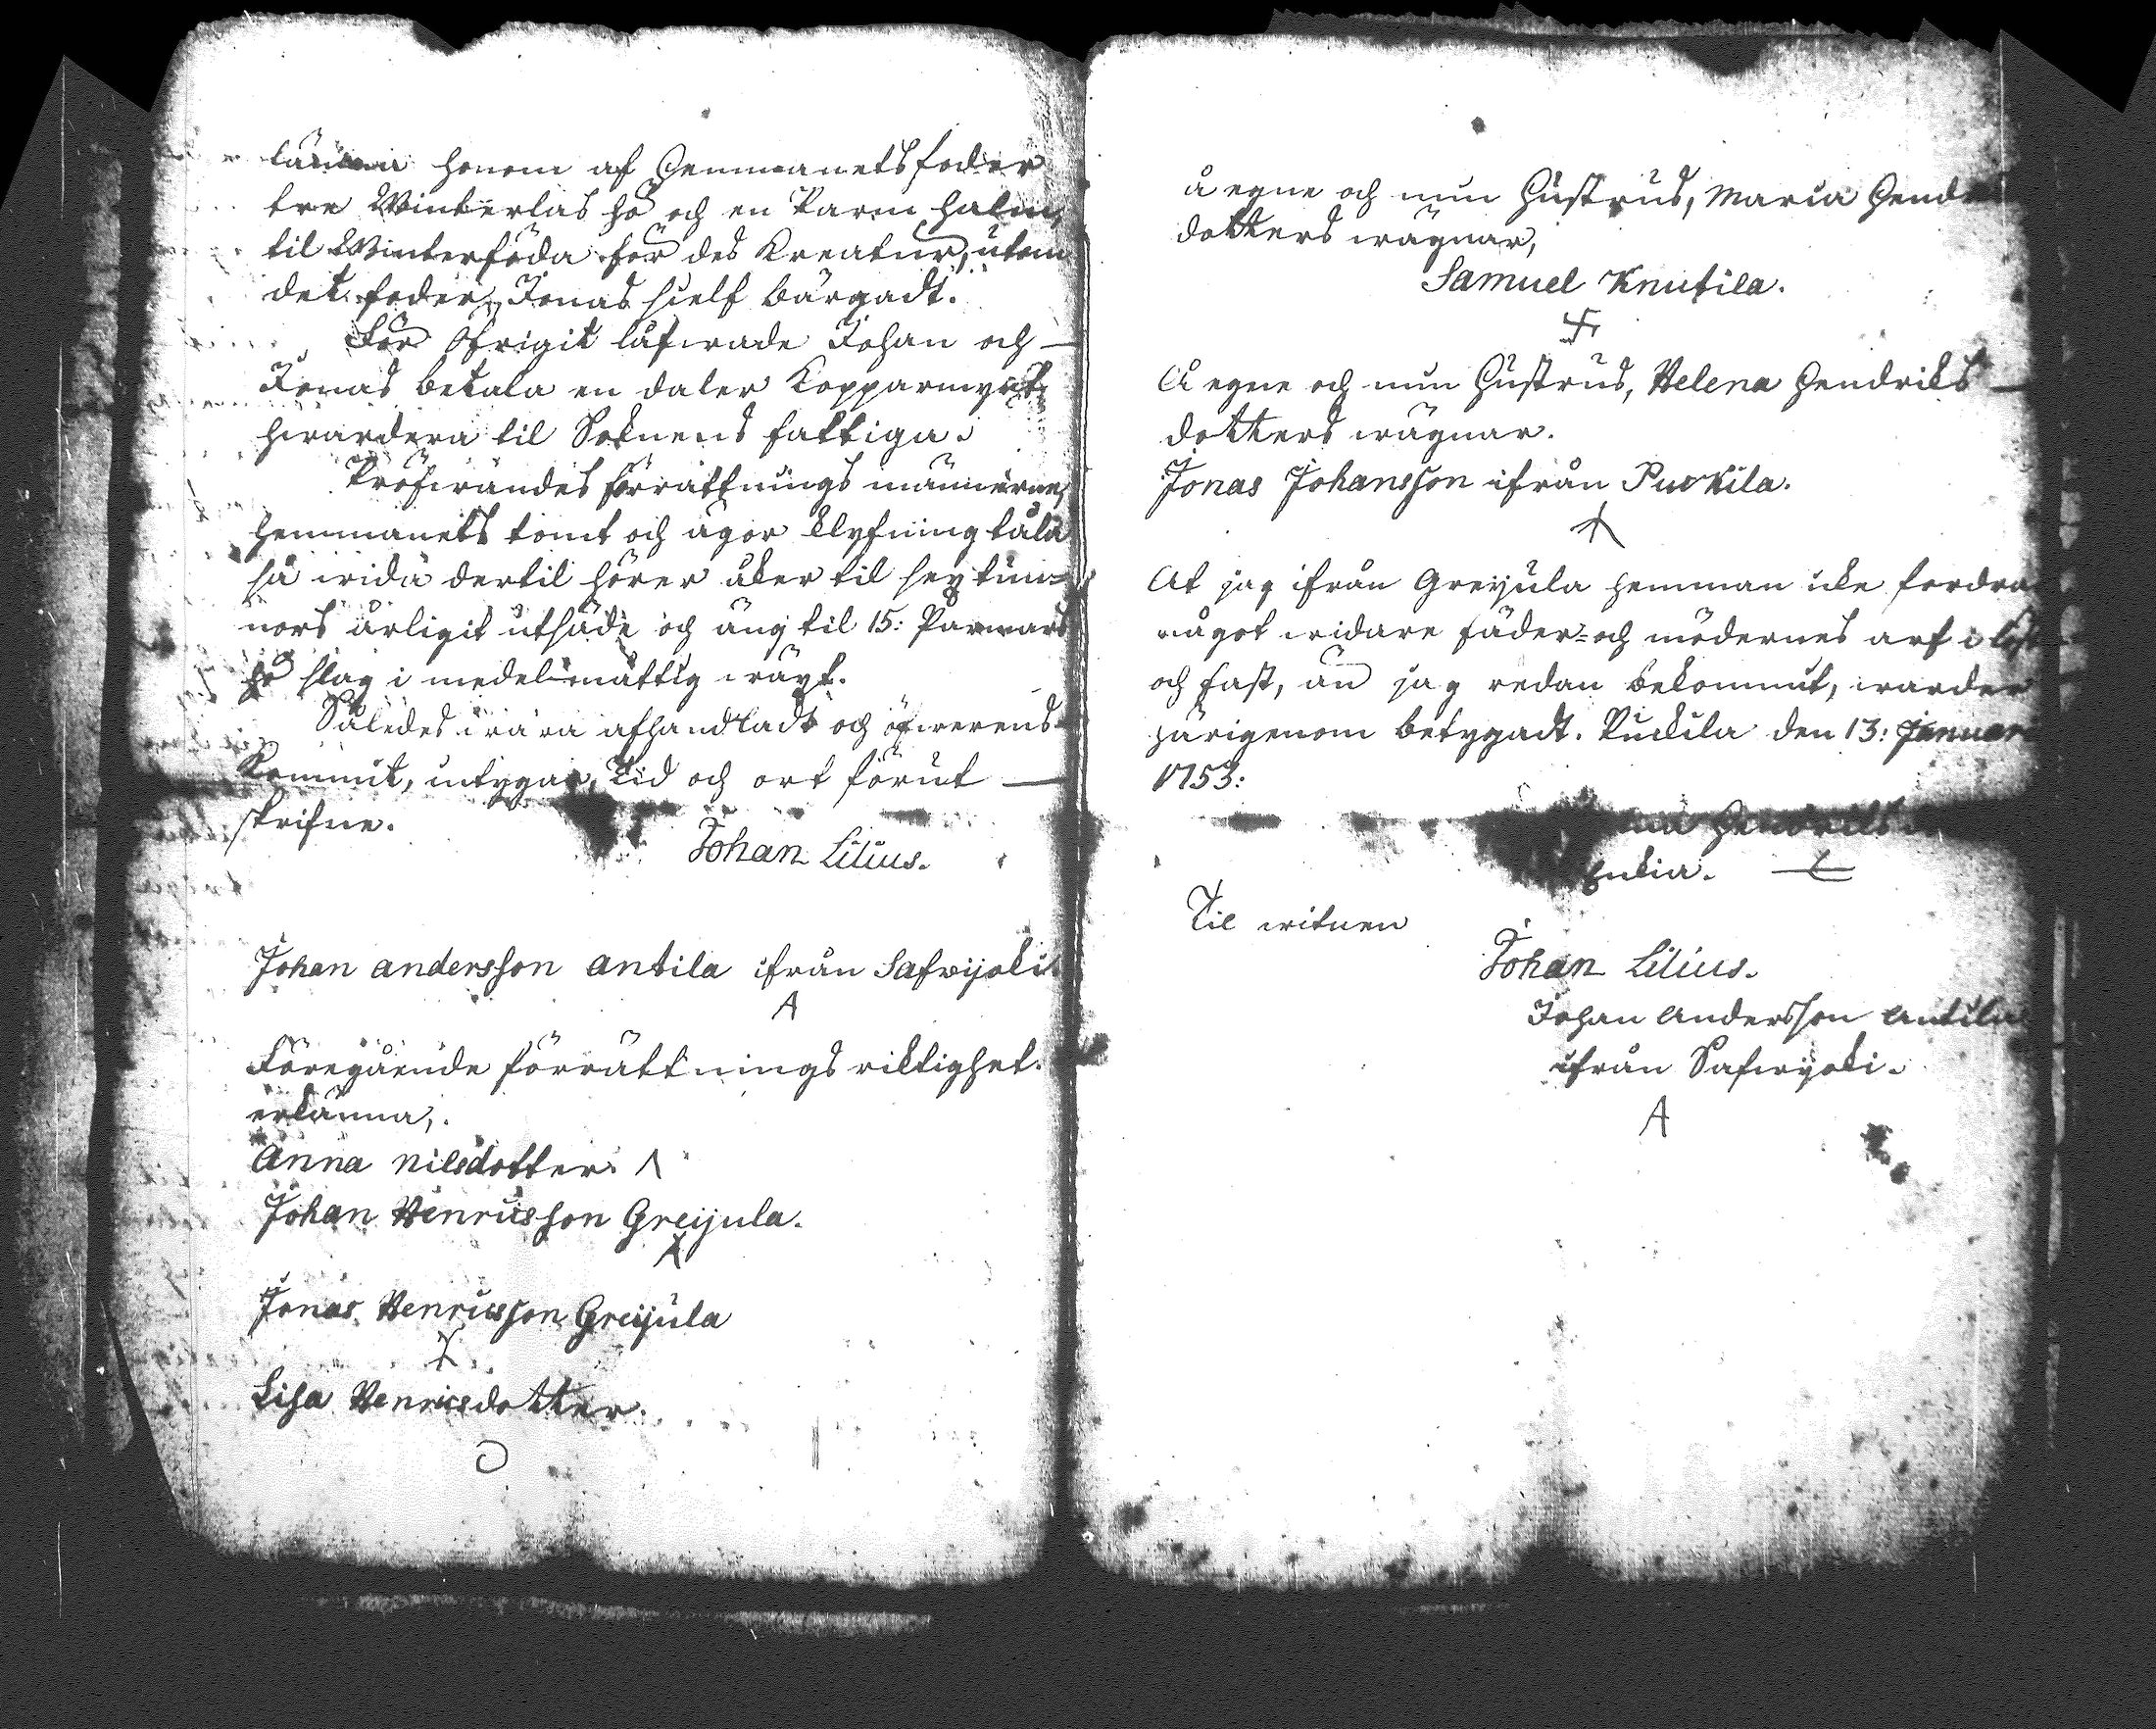 länna honom af Hemmanets foder
tre Winterlas hö och en Parm halm,
til Winterföda för des Kreatur, utom
det foder, Jonas sielf bärgadt.
För öfrigit låfwade Johan och
Jonas betala en daler Kopparmynt
hwardera til Soknens fattiga.
Pröfwandes förrättnings männerne,
hemmanets tomt och ägor klyfning tåla
så wida dertil hörer åker til sey tun-
nors årligit utsäde och äng til 15: Parmars
hö slag i medelmåttig wäxt.
Således wara afhandladt och öfwerens
Kommit, intygar, Tid och ort förut
skrifne.
Johan Lilius.
Johan andersson antila ifrån Safwijoki.
A
Föregående förrättnings riktighet
erkänna,
Anna nilsdotter.
Johan Henricsson Greijula.
Jonas Henricsson Greijula
Lisa Henricsdotter.
å egne och min Hustrus, Maria Hend
dotters wägnar,
Samuel Knutila.
Å egne och min Hustrus, Helena Hendriks
dotters wägnar.
Jonas Johansson ifrån Purkila.
At jag ifrån Greijula hemman icke fordra
något widare fäder- och mödernes arf i löst
och fast, än jag redan bekommit, warder
härigenom betygadt. Pukila den 13: Januari
1753:
Hendriks
Enkia.
Til witnen
Johan Lilius.
Johan Andersson Antila
ifrån Safwijoki.
A